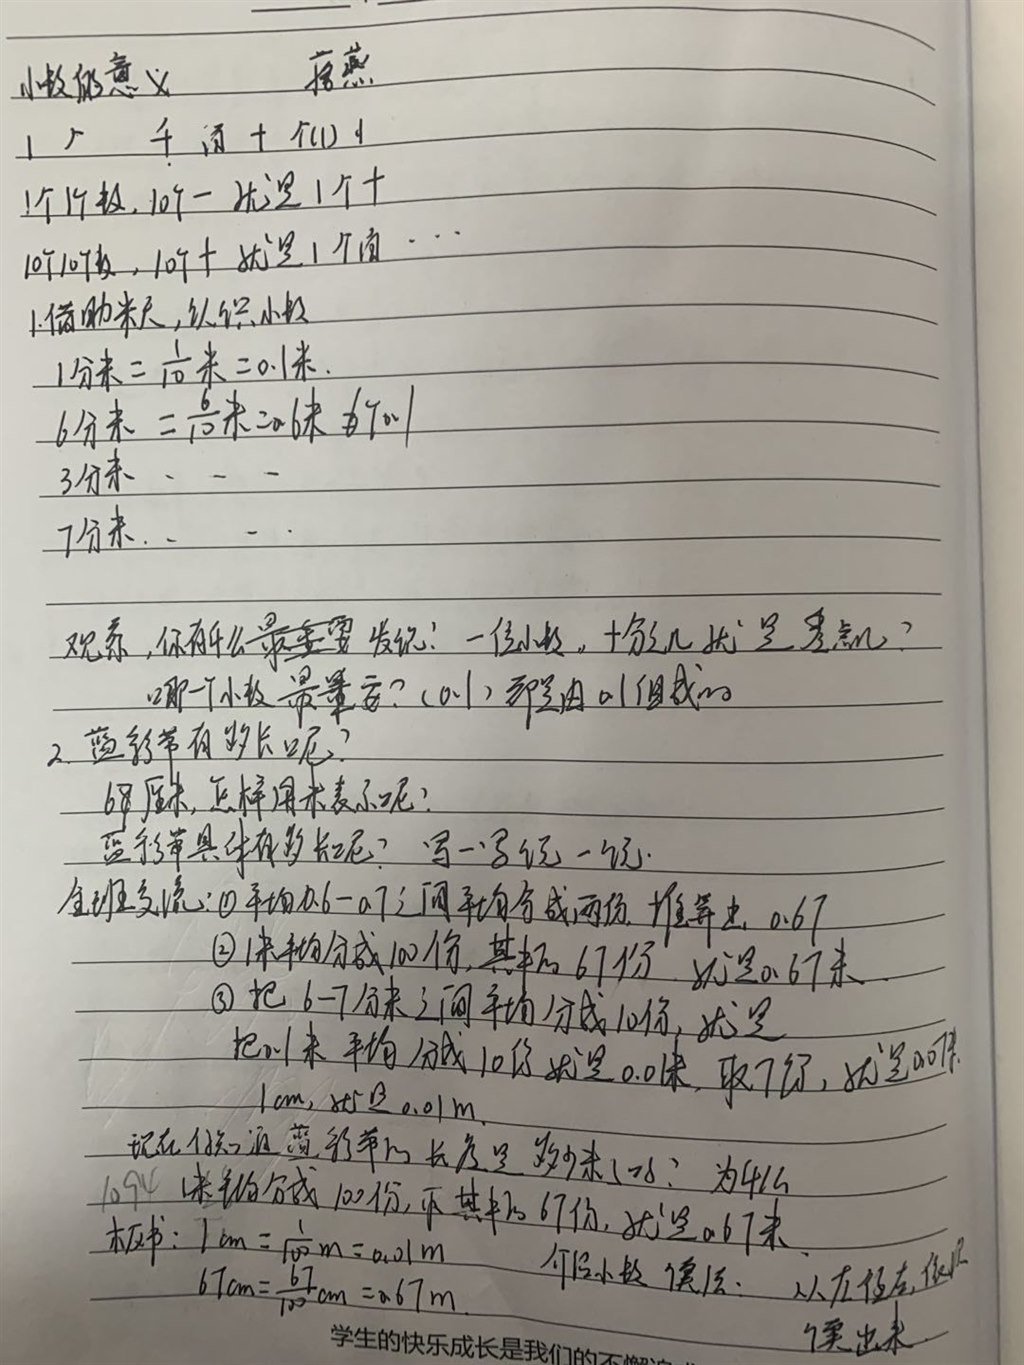 小数的意义 蒋燕
1 个 千 百 十 个(1)
1个1个数,10个一就是1个十
10个10个数,10个十就是1个百…
1.借助米尺,认识小数
1分米=1/10米=0.1米.
6分米=6/10米=0.6米 6个0.1
3分米 - - -
7分米.. - .
观察,你有什么最重要发现? 一位小数,十分之几就是零点几?
哪一个小数最重要?(0.1)都是由0.1组成的
2.蓝彩带有多长呢?
67厘米,怎样用米表示呢?
蓝彩带具体有多长呢? 写一写 说一说.
全班交流:①平均0.6-0.7之间平均分成两份,推算出0.67
②1米平均分成100份,其中的67份 就是0.67米
③把6-7分米之间平均分成10份,就是
把0.1米平均分成10份就是0.01米,取7份,就是0.07米.
1cm,就是0.01m.
现在你知道蓝彩带的长度是多少米了吗? 为什么
1094 1米平均分成100份,取其中的67份,就是0.67米.
板书: 1cm=1/100m=0.01m 小数读法: 从左往右,依次
67cm=67/100cm=0.67m. 读出来.
学生的快乐成长是我们的不懈追